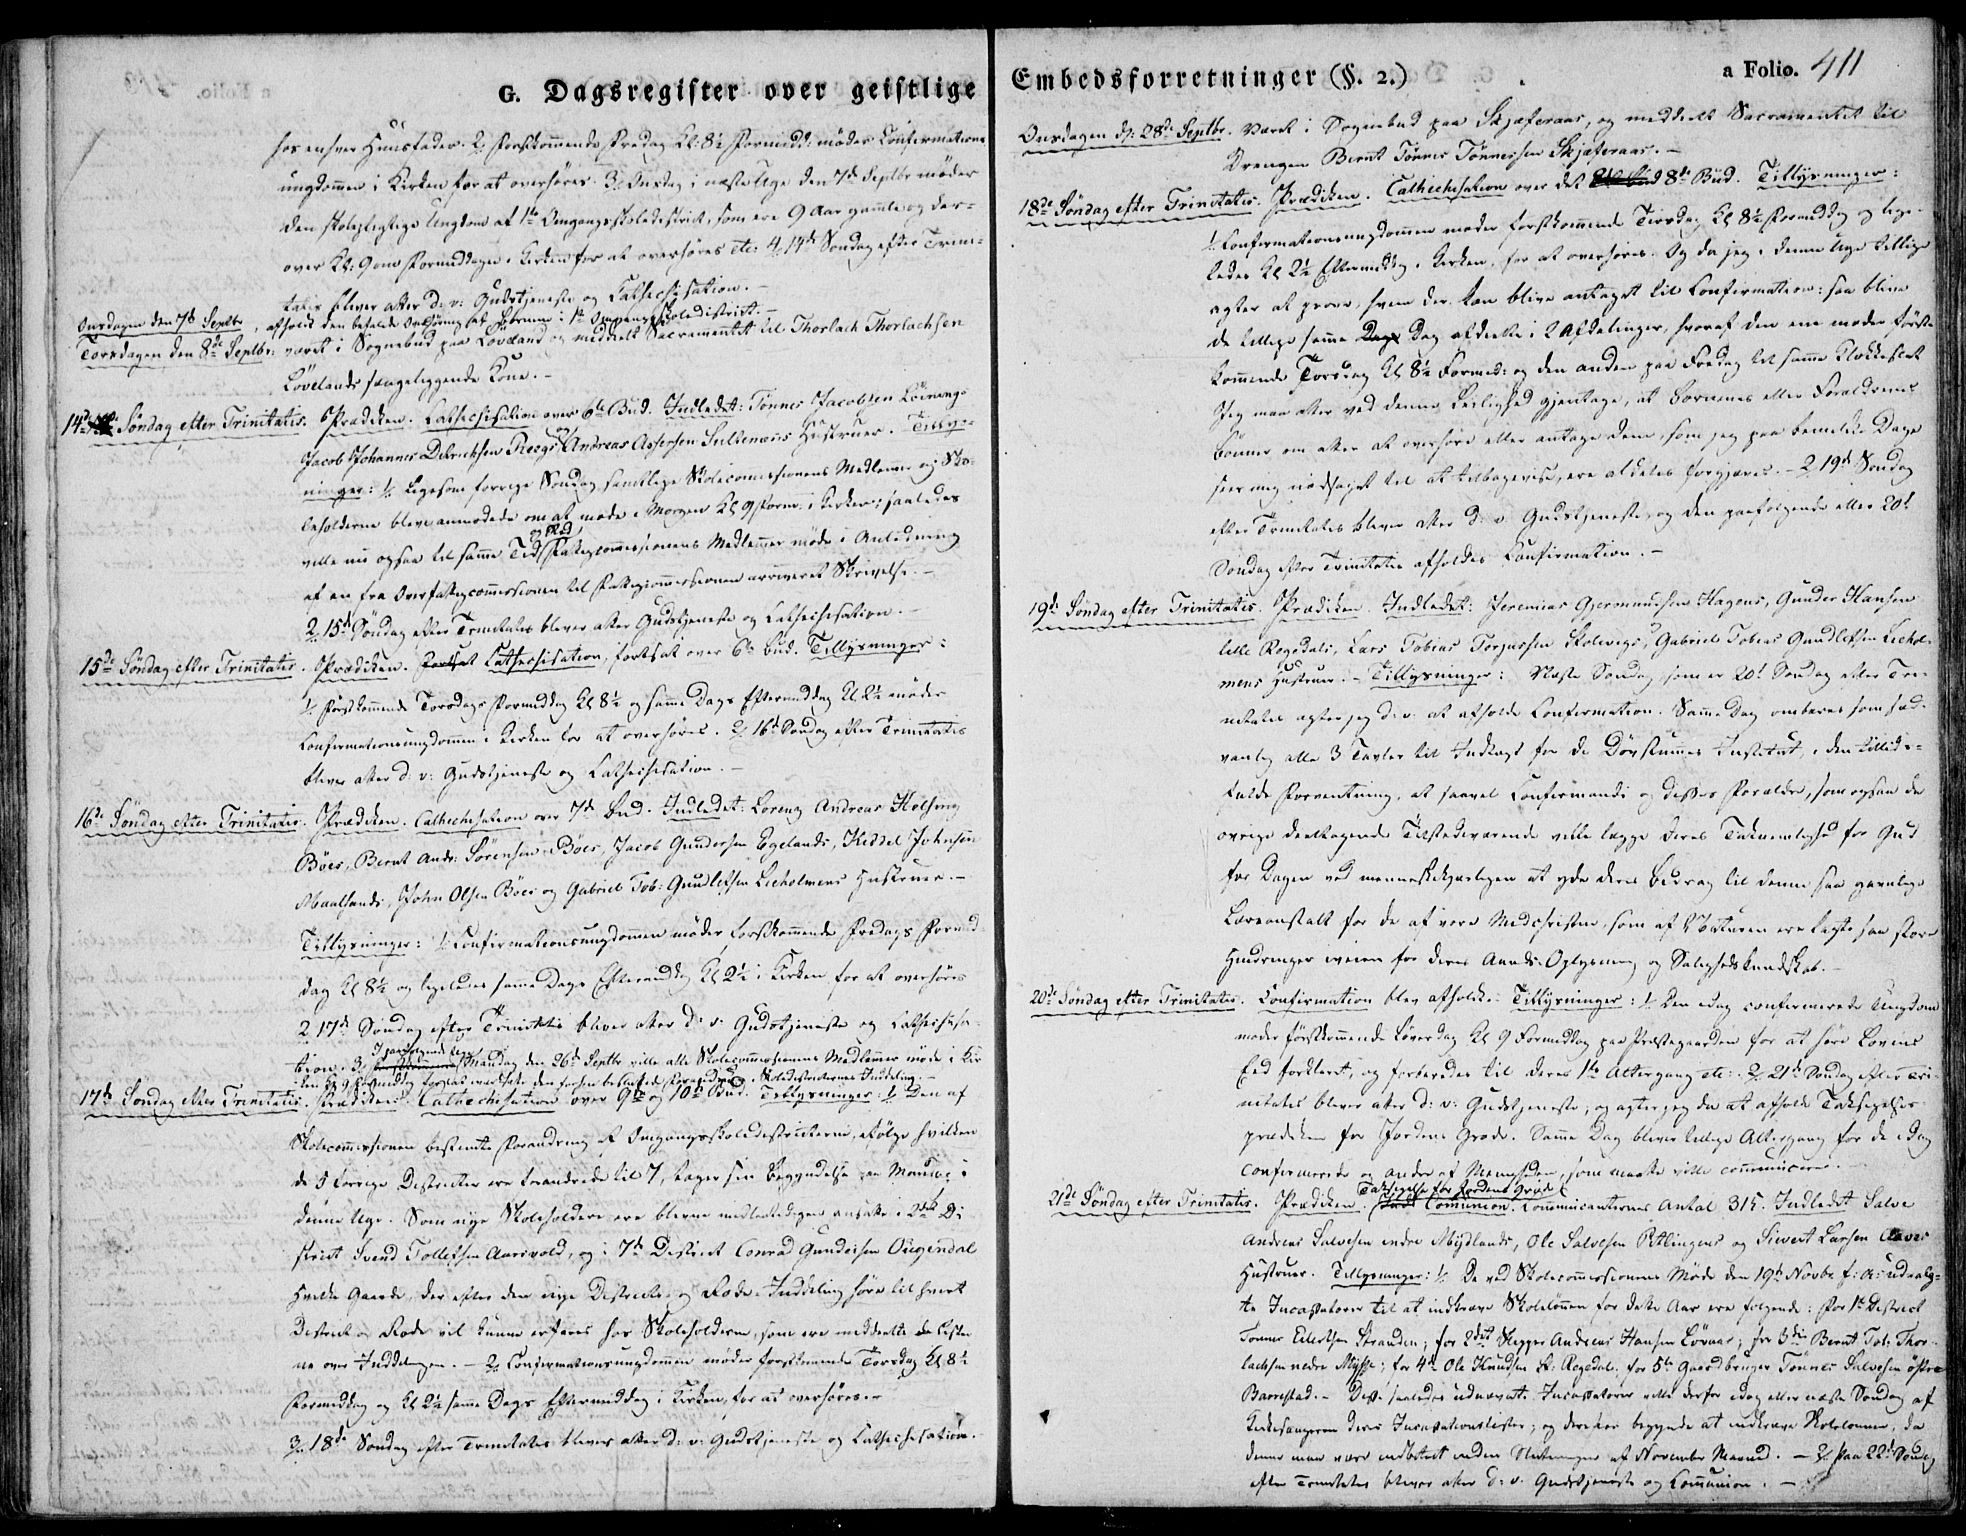 G. Dagsregister over geistlige
hos enhver Huusfader. 2, Førstkommende Fredag Kl: 8½ Formidd: møder Confirmations
ungdommen i Kirken for at overhøres. 3, Onsdag i næste Uge den 7de Septbr møder
den skolepligtige Ungdom af 1ste Omgangsskoledistrict, som ere 9 Aar gamle og der-
over Kl: 9 om Formiddagen i Kirken for at overhøres etc: 4, 14de Søndag efter Trini-
tatis bliver atter d: v: Gudstjeneste og Cathechisation. –
Onsdagen den 7de Septbr, afholdt den befalede Overhøring af Børnene i 1ste Omgangsskoledistrict. –
Torsdagen den 8de Septbr: været i Sognebud paa Løveland og meddeelt Sacramentet til Thorlach Thorlachsen
Løvelands sengeliggende Kone. –
14de Søndag efter Trinitatis. Prædiken. Cathechisation over 6te Bud. Indledet: Tønnes Jacobsen
Jacob Johannes Andreas Hustruer. Tilly-
ninger: 1, Ligesom forrige Søndag samtlige Skolecommissionens Medlemmer og Sko-
leholderne bleve anmodede om at møde i Morgen Kl 9 Form: i Kirken; saaledes
og Sted
ville nu ogsaa til samme Tid Fattigcommissionens Medlemmer møde i Anledning
af en fra Overfattigcommissionen til Fattigcommissionen arriveret Skrivelse. –
2, 15de Søndag efter Trinitatis bliver atter Gudstjeneste og Cathechisation. –
15de Søndag efter Trinitatis. Prædiken. Fortsat Cathechisation, fortsat over 6te Bud. Tillysninger:
1, Førstkommende Torsdags Formiddag Kl 8½ og samme Dags Eftermiddag Kl 2½ møder
Confirmationsungdommen i Kirken for at overhøres. 2, 16de Søndag efter Trinitatis
bliver atter d: v: Gudstjeneste og Cathechisation. –
16de Søndag efter Trinitatis. Prædiken. Cathechisation over 7de Bud. Indledet: Lorentz Andreas
Böes, Bernt Andr: Sørensen Böes, Jacob Gundersen Egelands, Kittel Johnsen
John Olsen Böes og Gabriel Tob: Gundlefsen Leeholmens Hustruer. –
Tillysninger: 1, Confirmationsungdommen møder førstkommende Fredags Formid-
dag Kl 8½ og ligeledes samme Dags Eftermiddag Kl 2½ i Kirken for at overhøres
2, 17de Søndag efter Trinitatis bliver atter d: v: Gudstjeneste og Cathechisa-
tion. 3, Mandag den 26de Septbr ville alle Skolecommissionens Medlemmer møde i Kir-
ken Kl 9 Formiddag Skoledistricternes Inddeling. –
17de Søndag efter Trinitatis. Prædiken. Cathechisation over 9de og 10de Bud. Tillysninger: 1, Den af
Skolecommissionen bestemte Forandring af Omgangsskoledistricterne, ifølge hvilken
de 5 forrige Districter ere forandrede til 7, tager sin Begyndelse paa Mandag i
denne Uge. Som nye Skoleholdere ere blevne midlertidigen ansatte i 2det Di-
strict Svend Tollefsen Aarsvold, og i 7de District Conrad Gundersen
Hvilke Gaarde, der efter den nye Districts- og Rode-Inddeling høre til hvert
District og Rode vil kunne erfares hos Skoleholderne, som ere meddeelte Lister-
ne over Inddelingen. – 2, Confirmationsungdommen møder førstkommende Torsdag Kl 8½
Formiddag og Kl 2½ samme Dags Eftermiddag i Kirken, for at overhøres. –
3, 18de Søndag efter Trinitatis bliver atter d: v: Gudstjeneste og Cathechisation. –
Embedsforretninger (§. 2.)
a Folio. 411
Onsdagen d: 28de Septbr. Været i Sognebud paa Skjæferaas, og meddeelt Sacramentet til
Drengen Bernt Tönnes Tönnessen Skjæferaas. –
18de Søndag efter Trinitatis. Prædiken. Cathechisation over det 8de Bud. Tillysninger:
1, Confirmationsungdommen møder førstkommende Tirsdag Kl 8½ Formiddag og lige-
ledes Kl 2½ Eftermiddag i Kirken, for at overhøres. Og da jeg i denne Uge tillige
agter at prøve, hvem der kan blive antaget til Confirmation: saa blive
de tillige samme Dag afdeelte i 2 Afdelinger, hvoraf den ene møder først-
kommende Torsdag Kl 8½ Formid: og den anden paa Fredag til samme Klokkeslet
Jeg maa atter ved denne Leilighed gjentage, at Børnenes eller Forældrenes
Bønner om atter at overhøre eller antage dem, som jeg paa bemeldte Dage
seer mig nødsaget til at tilbagevise, ere aldeles forgjæves. – 2, 19de Søndag
efter Trinitatis bliver atter d: v: Gudstjeneste, og den paafølgende eller 20de
Søndag efter Trinitatis afholdes Confirmation. –
19de Søndag efter Trinitatis. Prædiken. Indledet: Jeremias Gjermundsen Hagens, Gunder Hansen
lille Rogsdals, Lars Tobias Torjussen Skolevigs, Gabriel Tobias Gundlefsen Leehol-
mens Hustruer. – Tillysninger: Næste Søndag, som er 20de Søndag efter Tri-
nitatis agter jeg d: v: at afholde Confirmation. Samme Dag ombæres som sæd-
vanlig alle 3 Tavler til Indtægt for de Døvstummes Institut, i den tillids-
fulde Forventning, at saavel Confirmandi og disses Forældre, som ogsaa de
øvrige deeltagende Tilstedeværende ville lægge deres Taknemlighed for Gud
for Dagen ved menneskekjærligen at yde deres Bidrag til denne saa gavnlige
Læreanstalt for de af vore Medchristne, som af Naturen ere lagte saa store
Hindringer iveien for deres Aands-Oplysning og Salighedskundskab. –
20de Søndag efter Trinitatis. Confirmation blev afholdt. Tillysninger: 1, Den idag confirmerede Ungdom
møder førstkommende Løverdag Kl 9 Formiddag paa Præstegaarden for at høre Lovens
Eed forklaret, og forberedes til deres 1ste Altergang etc: 2, 21de Søndag efter Tri-
nitatis bliver atter d: v: Gudstjeneste; og agter jeg da at afholde Taksigelses-
prædiken for Jordens Grøde. Samme Dag bliver tillige Altergang for de idag
confirmerede og andre af Menigheden, som maatte ville communicere. –
Taksigelse for Jordens Grøde
21de Søndag efter Trinitatis. Prædiken. Comunion. Communicanternes Antal 315. Indledet Salve
Andreas Salvesen nedre Mydlands, Ole Salvesen og Siwert Larsen
Hustruer. Tillysninger: 1, De ved Skolecommissionens Møde den 19de Novbr f: A: udvalg-
te Incassatorer til at indkræve Skolelønnen for dette Aar ere følgende: for 1ste District
Tönnes Eilertsen Stranden; for 2det Skipper Andreas Hansen Lövaas; for 3die Bernt Tob: Thor-
lachsen nedre; for 4de Ole Knudsen St: Rogsdal, for 5te Gaardbruger Tönnes Salvesen östre
Barrestad. – Disse saaledes udnævnte Incassatorer ville derfor idag eller næste Søndag af
Kirkesangeren deres Incassationslister; og derefter begynde at indkræve Skolelønnen, da
denne maa være indbetalt inden Slutningen af November Maaned. – 2, Paa 22de Søndag
efter Trinitatis bliver atter d: v: Gudstjeneste og Communion. –